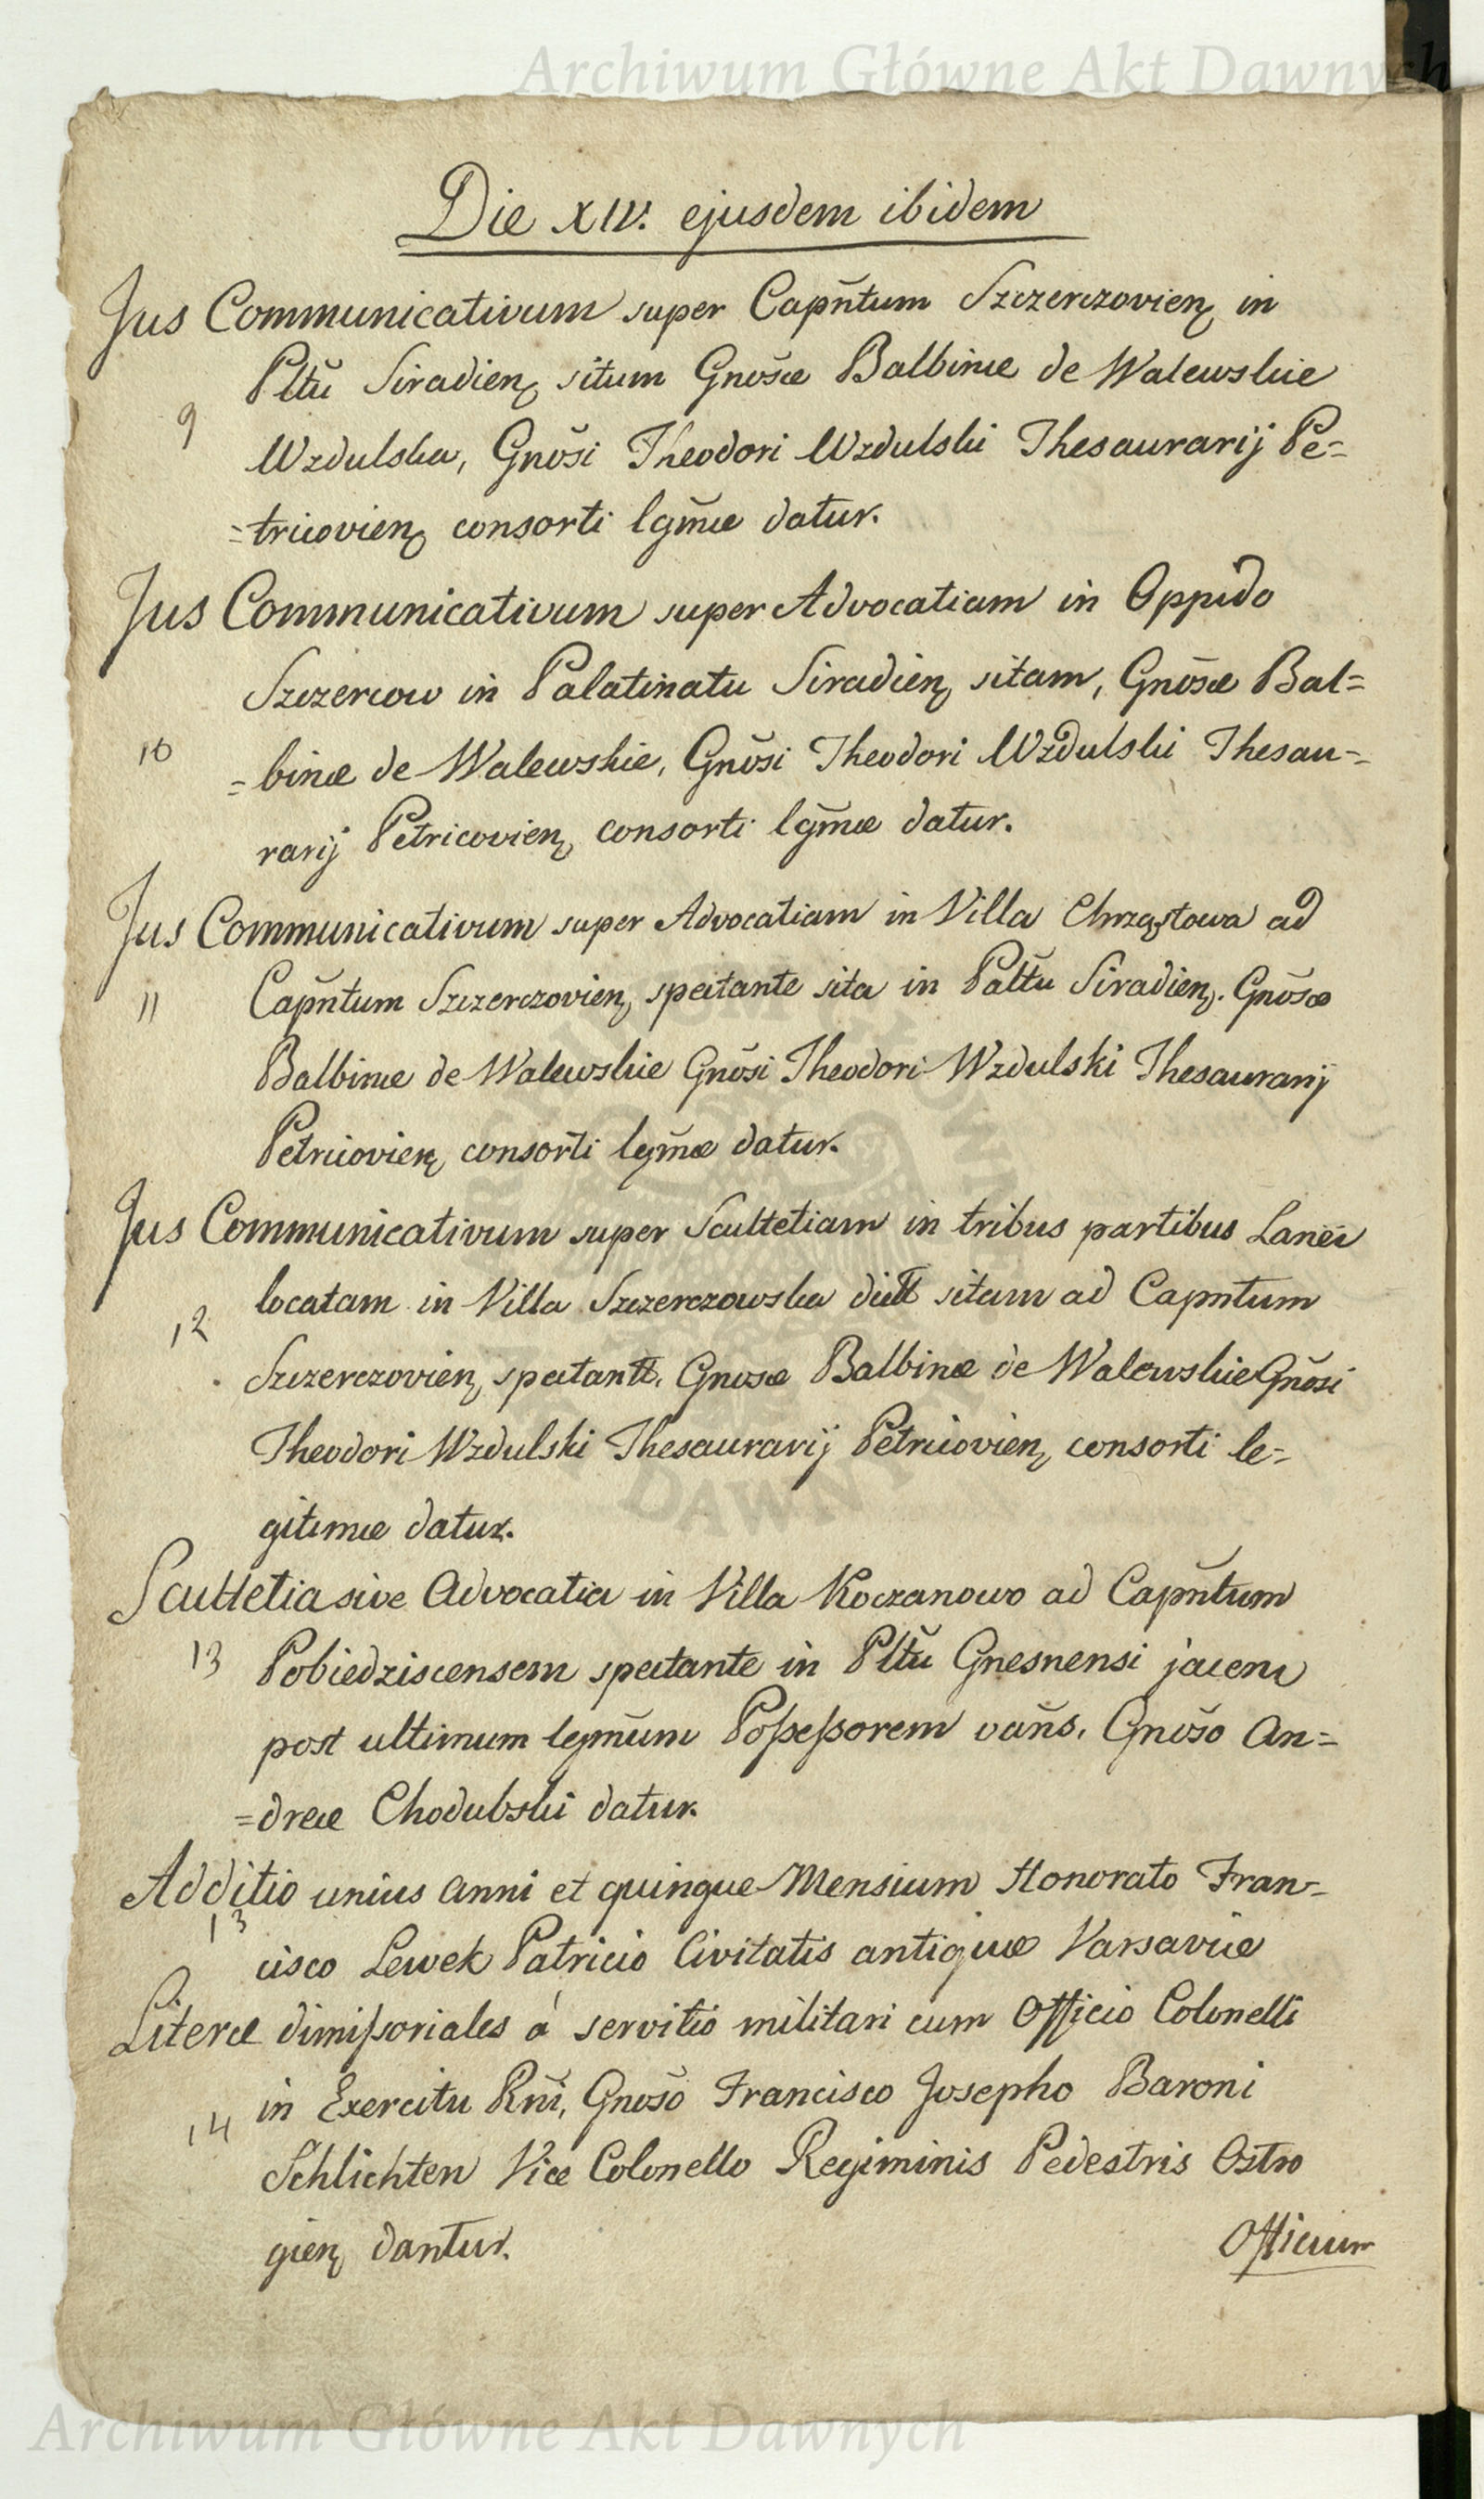 Archiwum Główne Akt Dawnych
Die XIV. ejusdem ibidem
Jus Communicativum super Capn̄tum Szczerczovien̨ in
Pltũ Siradien̨ situm Gnõsæ Balbinæ de Walewskie
9
Wzdulska, Gnõsi Theodori Wzdulski Thesaurarij Pe=
=tricovien̨ consorti lgm̄æ datur.
Jus Communicativum super Advocatiam in Oppido
Szczercow in Palatinatu Siradien̨ sitam, Gnōsæ Bal=
10
=binæ de Walewskie, Gnõsi Theodori Wzdulski Thesau=
rarij Petricovien̨ consorti lgm̄æ datur.
Jus Communicativum super Advocatiam in Villa Chrząstowa ad
11
Capn̄tum Szczerczovien̨ spectante sita in Paltũ Siradien̨. Gnōsæ
Balbinæ de Walewskie Gnõsi Theodori Wzdulski Thesaurarij
Petricovien̨ consorti lgm̄æ datur.
Jus Communicativum super Scultetiam in tribus partibus Lanei
locatam in Villa Szczerczowska dictt sitam ad Capntum
12
Szczerczovien̨ spectantt. Gnosæ Balbinæ de Walewskie Gnõsi
Theodori Wzdulski Thesaurarij Petricovien̨ consorti le=
gitimæ datur.
Scultetia sive Advocatia in Villa Koczanowo ad Capn̄tum
13
Pobiedziscensem spectante in Pltũ Gnesnensi jacen
post ultimum lgmūm Poßeßorem vañs. Gnõso An=
=dreæ Chodubski datur.
Additio unius Anni et quinque Mensium Honorato Fran=
13
cisco Lewek Patricio Civitatis antiquæ Varsaviæ
Literæ dimißoriales á servitio militari cum Officio Colonelli
in Exercitu Rñi, Gnõso Francisco Josepho Baroni
14
Schlichten Vice Colonello Regiminis Pedestris Ostro
gien̨ dantur.
Officium
Archiwum Główne Akt Dawnych